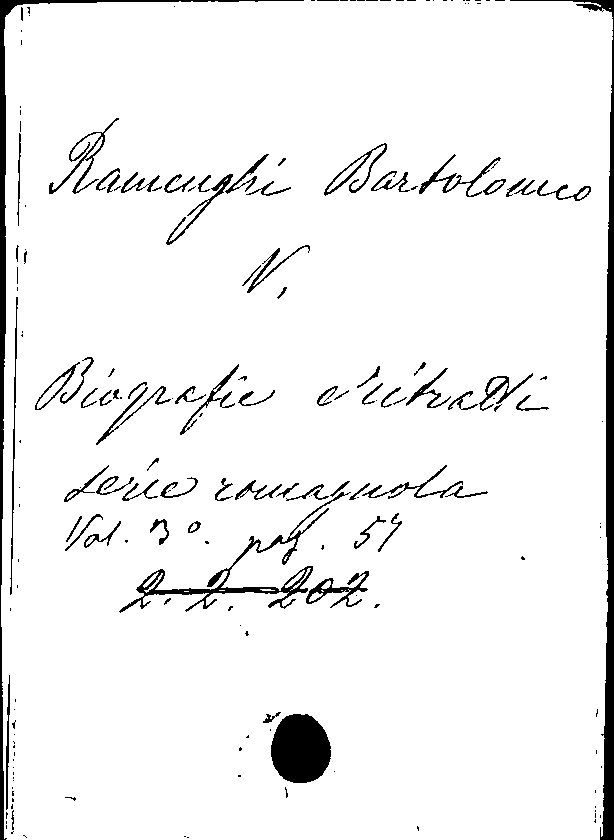 Ramenghi Bartolomeo
V.
Biografie e ritratti
serie romagnola
Vol. 3º. pag. 57
2. 2. 202.